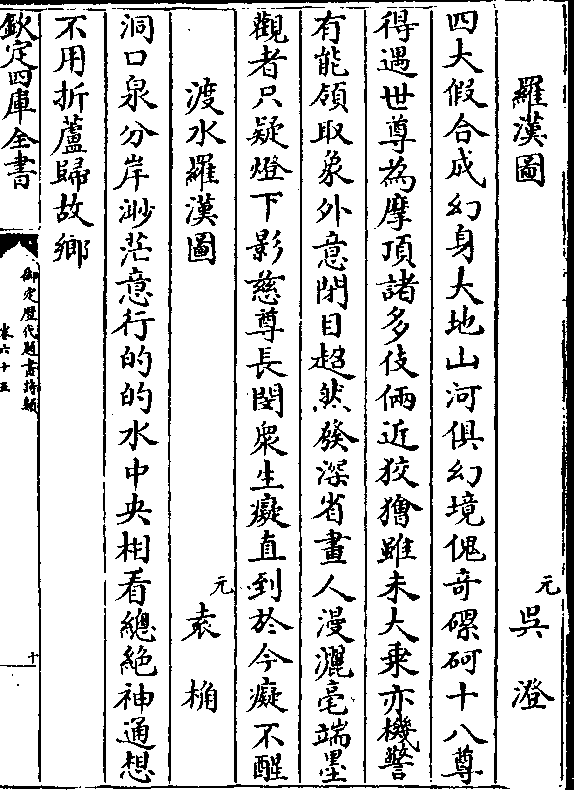 羅漢圖
元
吳澄
四大假合成幻身大地山河俱幻境傀奇磥砢十八尊
得遇世尊為摩頂諸多伎倆近狡獪雖未大乗亦機警
有能領取象外意閉目超然發深省畫人漫灑毫端墨
觀者只疑燈下影慈尊長閔衆生癡直到於今癡不醒
渡水羅漢圖
元
袁桷
洞口泉分岸渺茫意行的的水中央相看總絶神通想
不用折蘆歸故鄉
欽定四庫全書
御定歴代題畫詩類
卷六十五
十